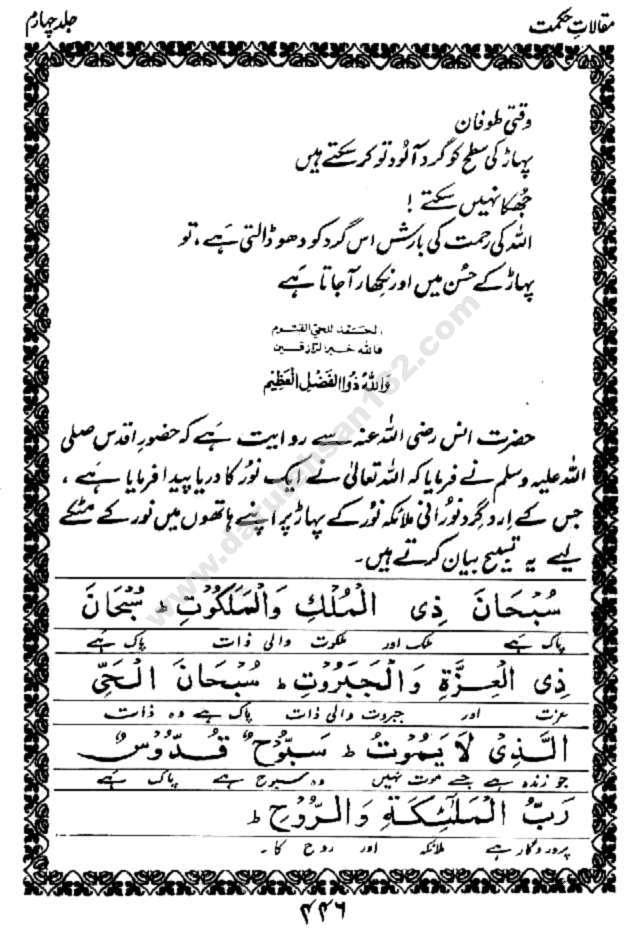 مقالاتِ حکمت
جلد چہارم
وقتی طوفان
پہاڑ کی سطح کو گرد آلود تو کر سکتے ہیں
جُھکا نہیں سکتے !
اللہ کی رحمت کی بارش اس گرد کو دھو ڈالتی ہے ، تو
پہاڑ کے حُسن میں اور نِکھار آ جاتا ہے
الحَمْد للحیّ القیّوم
فاللہ خیر الرّازقین
وَاللّٰهُ ذُو الْفَضْلِ الْعَظِيْمِ
حضرت انس رضی اللہ عنہ سے روایت ہے کہ حضورِ اقدس صلی
اللہ علیہ وسلم نے فرمایا کہ اللہ تعالیٰ نے ایک نُور کا دریا پیدا فرمایا ہے ،
جس کے اِرد گِرد نُورانی ملائکہ نُور کے پہاڑ پر اپنے ہاتھوں میں نور کے مٹکے
لیے یہ تسبیح بیان کرتے ہیں۔
سُبْحَانَ ذِی الْمُلْكِ وَالْمَلَكُوْتِ ط سُبْحَانَ
پاک ہے ملک اور ملکوت والی ذات پاک ہے
ذِی الْعِزَّةِ وَالْجَبَرُوْتِ ط سُبْحَانَ الْحَیِّ
عزت اور جبروت والی ذات پاک ہے وہ ذات
الَّذِیْ لَا یَمُوْتُ ط سَبُّوْحٌ قُدُّوْسٌ
جو زندہ ہے جسے موت نہیں وہ سبوح ہے پاک ہے
رَبُّ الْمَلٰٓئِكَةِ وَالرُّوْحِ ط
پروردگار ہے ملائکہ اور روح کا ۔
۴۴۶
www.darulehsan162.com